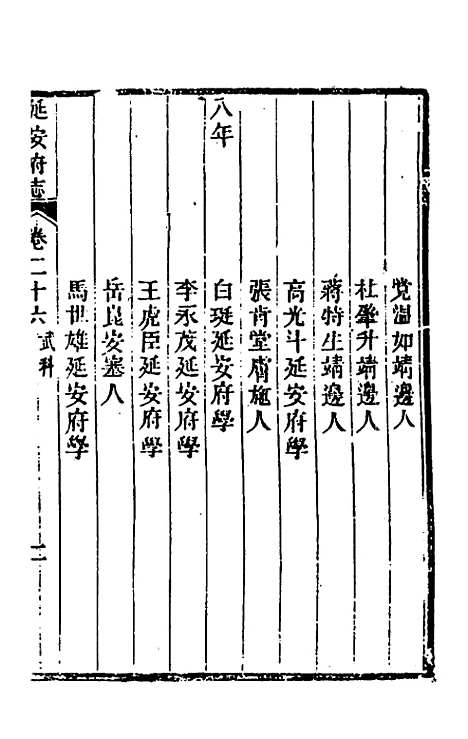 党溫如靖邊人
杜肇升靖邊人
蔣特生靖邊人
高光斗延安府學
張肯堂膚施人
八年 白珽延安府學
李永茂延安府學
王虎臣延安府學
岳崑安塞人
馬世雄延安府學
延安府志 卷二十六 武科 二